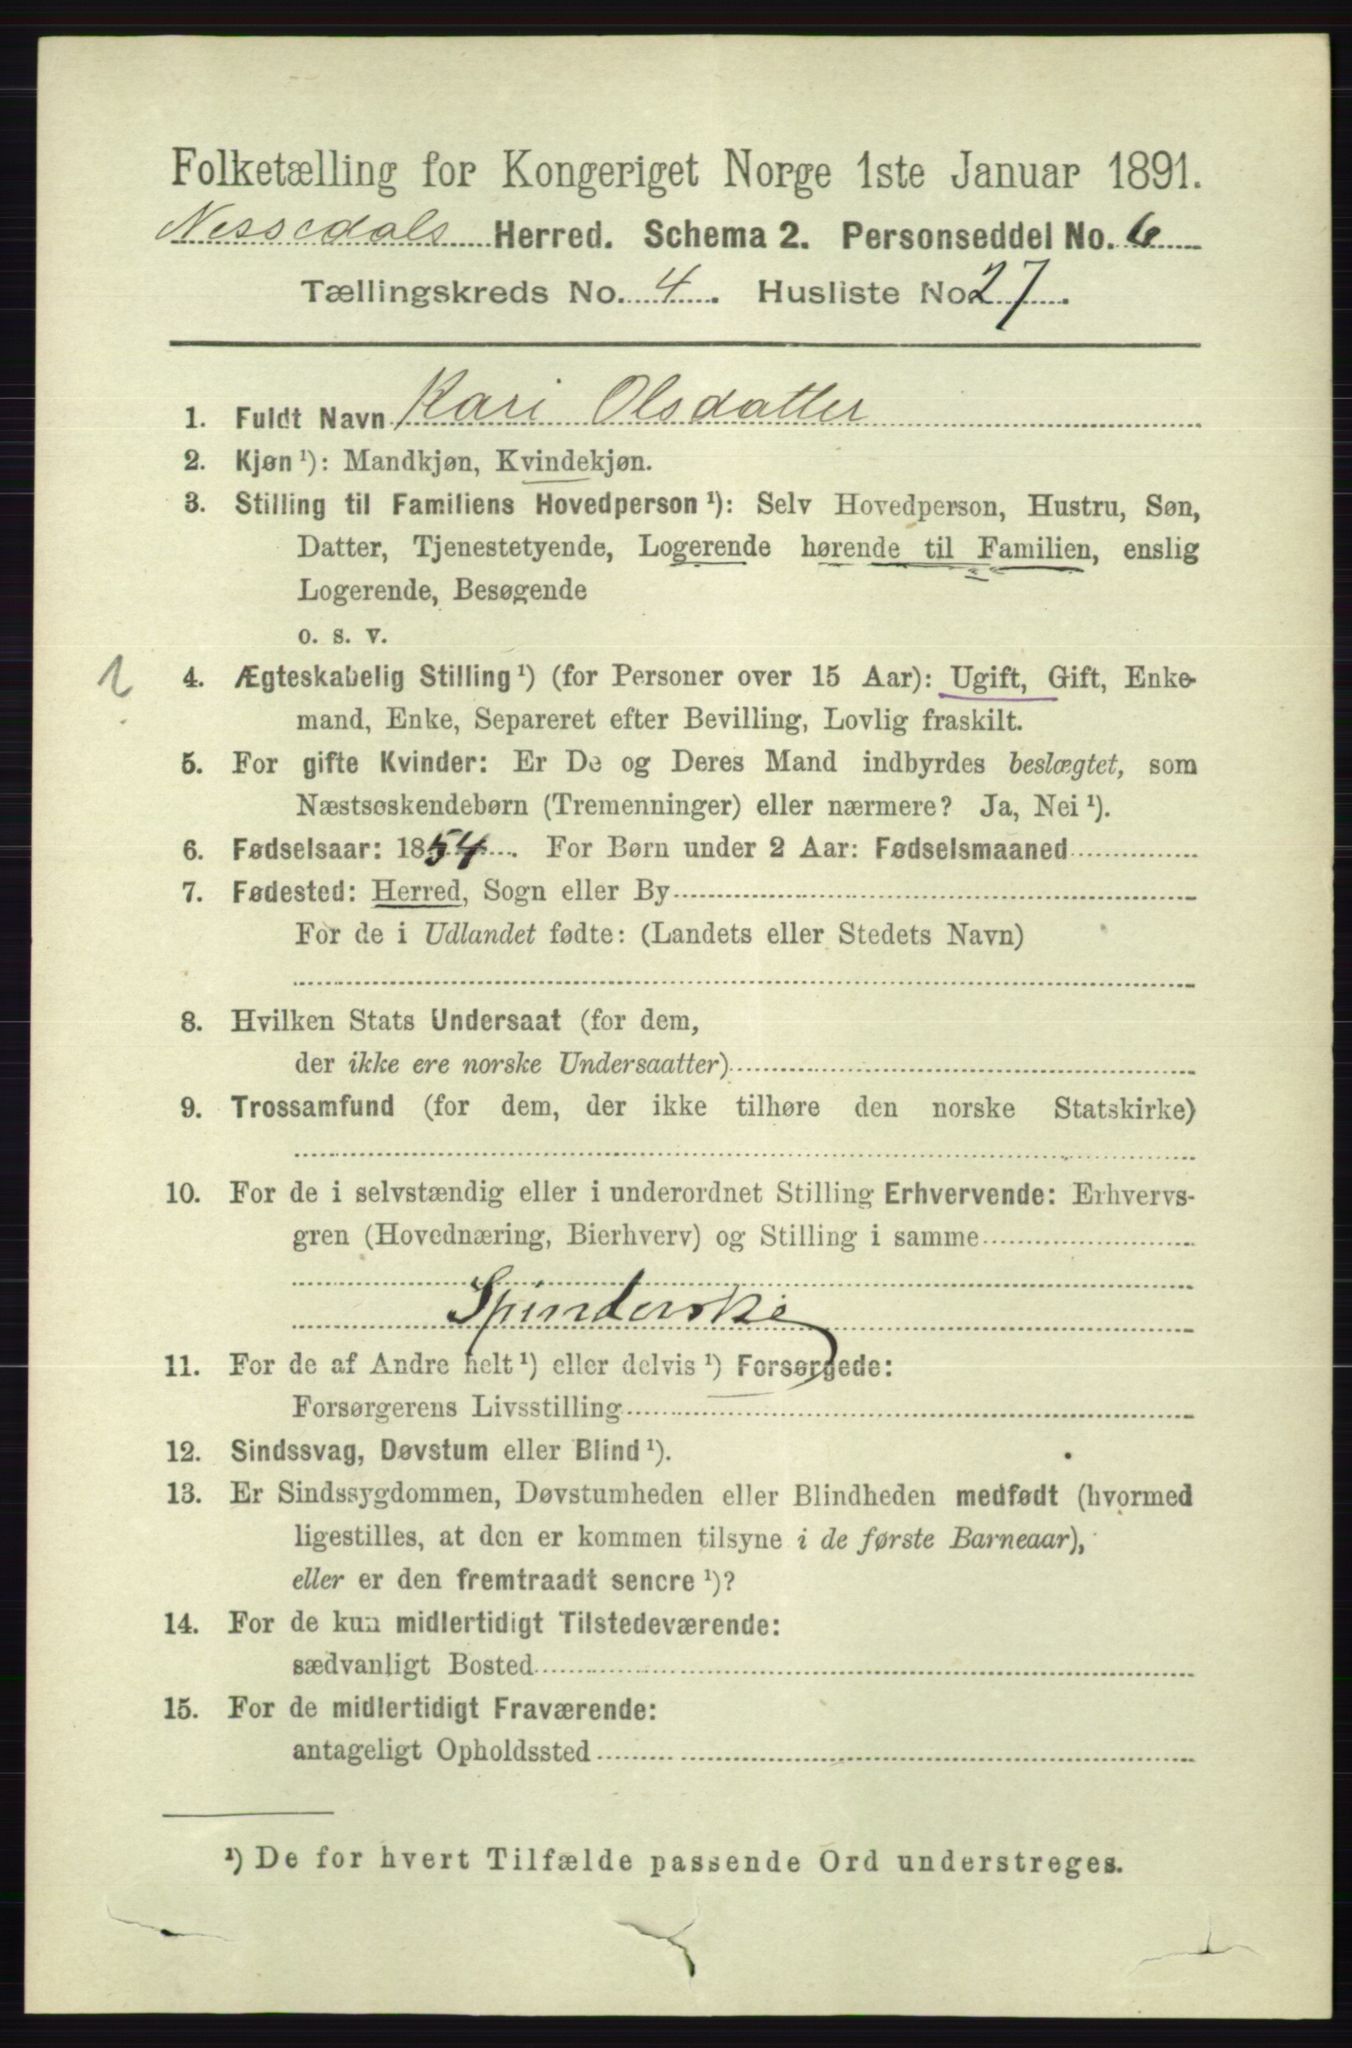 Folketælling for Kongeriget Norge 1ste Januar 1891.
Nissedals Herred. Schema 2. Personseddel No. 6
Tællingskreds No. 4. Husliste No. 27.
1. Fuldt Navn Kari Olsdatter
2. Kjøn ¹): Mandkjøn, Kvindekjøn.
3. Stilling til Familiens Hovedperson ¹): Selv Hovedperson, Hustru, Søn,
Datter, Tjenestetyende, Logerende hørende til Familien, enslig
Logerende, Besøgende
o. s. v.
1
4. Ægteskabelig Stilling ¹) (for Personer over 15 Aar): Ugift, Gift, Enke-
mand, Enke, Separeret efter Bevilling, Lovlig fraskilt.
5. For gifte Kvinder: Er De og Deres Mand indbyrdes beslægtet, som
Næstsøskendebørn (Tremenninger) eller nærmere? Ja, Nei ¹).
6. Fødselsaar: 1854. For Børn under 2 Aar: Fødselsmaaned
7. Fødested: Herred, Sogn eller By
For de i Udlandet fødte: (Landets eller Stedets Navn)
8. Hvilken Stats Undersaat (for dem,
der ikke ere norske Undersaatter)
9. Trossamfund (for dem, der ikke tilhøre den norske Statskirke)
10. For de i selvstændig eller i underordnet Stilling Erhvervende: Erhvervs-
gren (Hovednæring, Bierhverv) og Stilling i samme
Spinderske
11. For de af Andre helt ¹) eller delvis ¹) Forsørgede:
Forsørgerens Livsstilling
12. Sindssvag, Døvstum eller Blind ¹).
13. Er Sindssygdommen, Døvstumheden eller Blindheden medfødt (hvormed
ligestilles, at den er kommen tilsyne i de første Barneaar),
eller er den fremtraadt senere ¹)?
14. For de kun midlertidigt Tilstedeværende:
sædvanligt Bosted
15. For de midlertidigt Fraværende:
antageligt Opholdssted
¹) De for hvert Tilfælde passende Ord understreges.